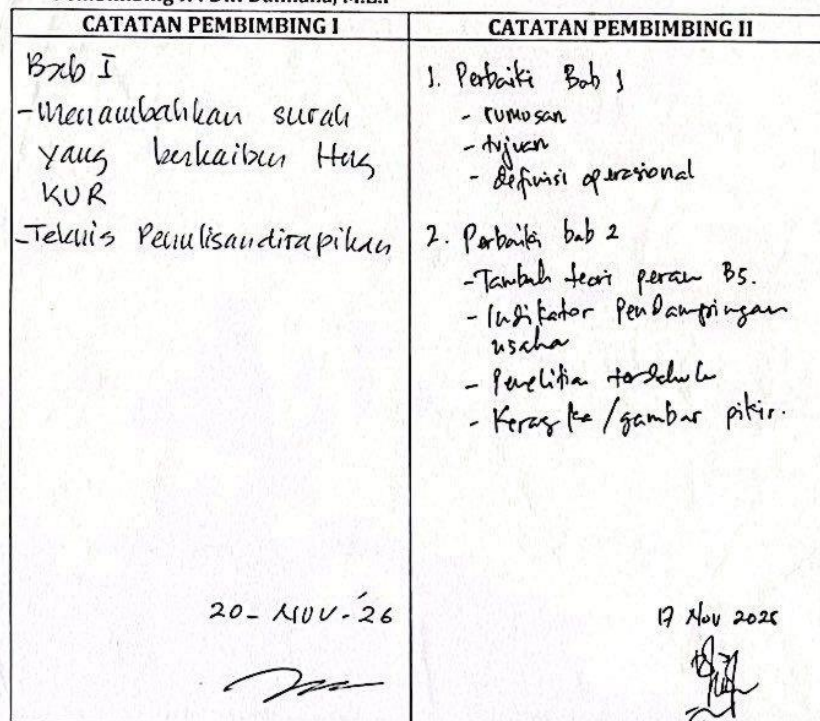 CATATAN PEMBIMBING I
Bab I
- Menambahkan surah
yang berkaitan ttg
KUR
- Teknis Penulisan dirapikan
20 - NOV - '26
CATATAN PEMBIMBING II
1. Perbaiki Bab 1
- rumusan
- tujuan
- definisi operasional
2. Perbaiki bab 2
- Tambah teori peran BS.
- Indikator Pendampingan
usaha
- Penelitian terdahulu
- Kerangka / gambar pikir.
17 Nov 2025